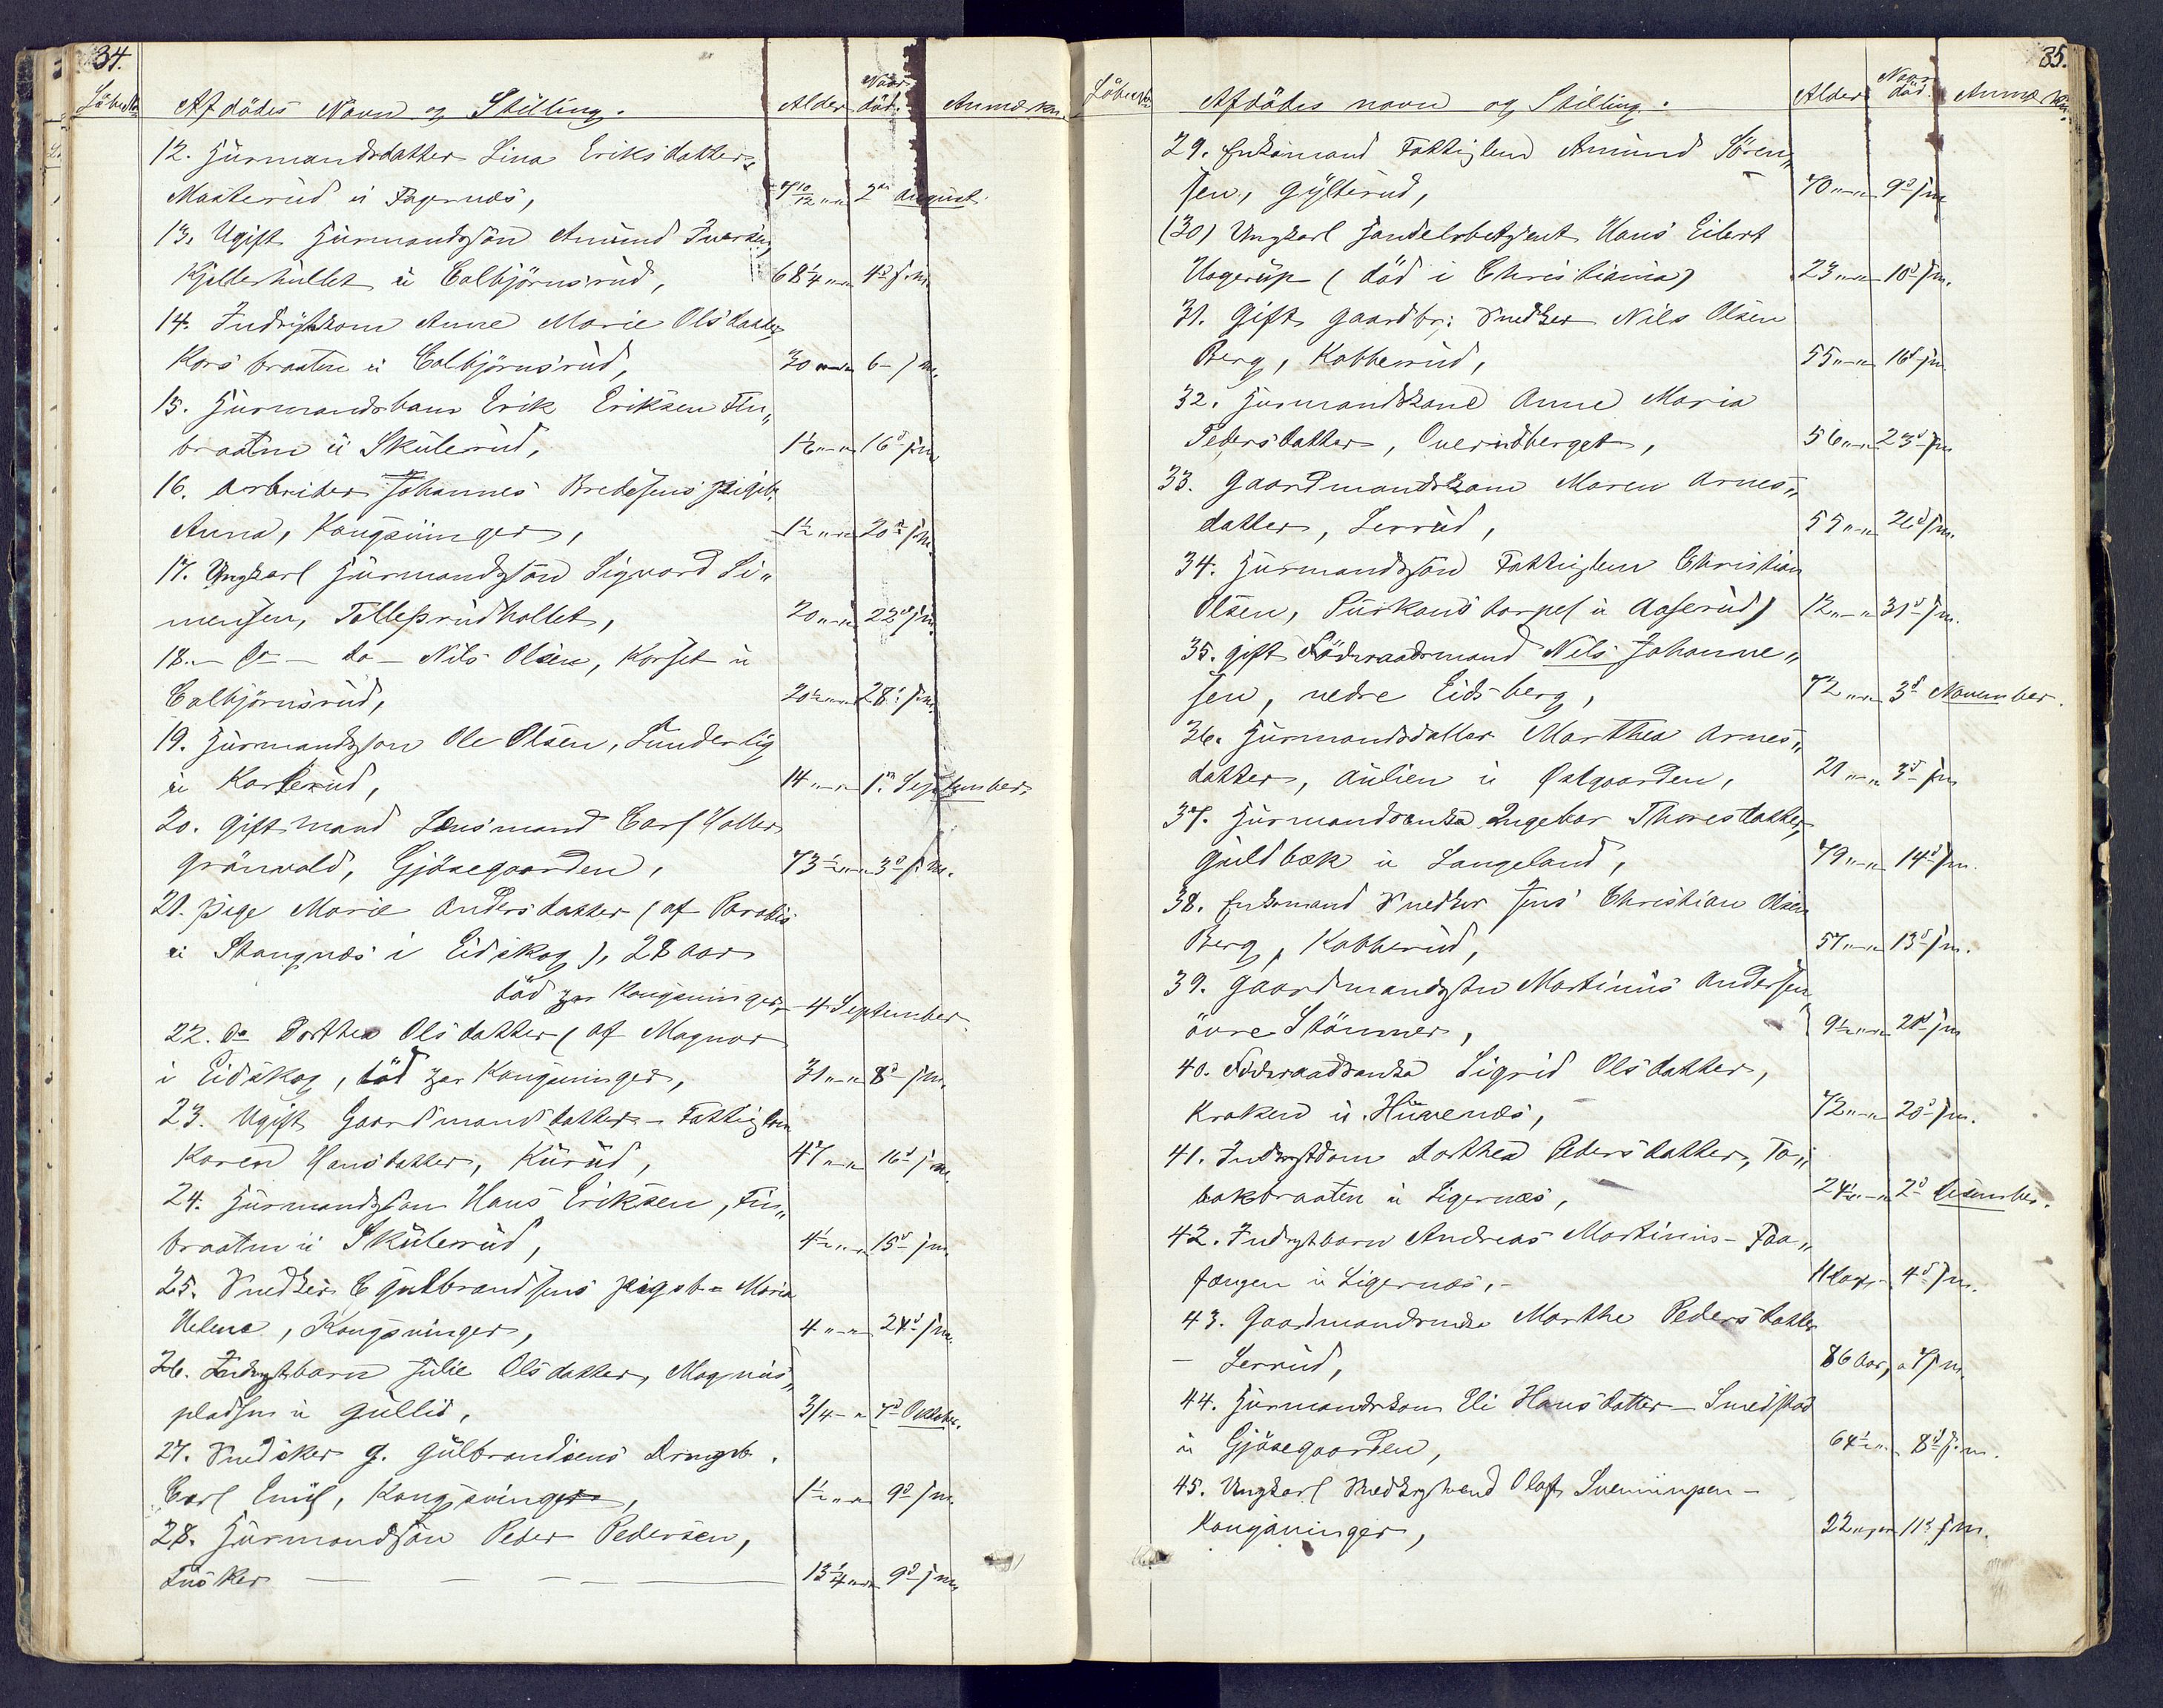 34.
Löbe No Afdödes Navn og Stilling. Alder Naar död. Anmærkn.
12. Huusmandsdatter Lina Eriksdatter,
Masterud u Fagernæs, 7 10/12 " " 2den August.
13. Ugift Huusmandssön Amund Iversen,
Kjelderhullet u Colbjörnsrud, 68 1/4 " " 4d s.m.
14. Indryststkone Anne Marie Olsdatter
Korsbraaten u Colbjörnsrud, 30 " " 6 - s.m.
15. Huusmandsbarn Erik Eriksen Fin„
braaten u Skulerud, 1 1/2 " " 16d s.m.
16. Arbeider Johannes Bredesens Pigeb.
Anna, Kongsvinger, 1 1/2 " " 20d s.m.
17. Ungkarl Huusmandssön Sigvard Si„
mensen, Tollefsrudhollet, 20 " " 22d s.m.
18. - Do - do - Nils Olsen, Korset u
Colbjörnsrud, 20 1/2 " " 28d s.m.
19. Huusmandssön Ole Olsen, Sunderlig
u Karterud, 14 " " 1ste September
20. Gift Mand Lensmand Carl Holter
Grönvold, Gjösegaarden, 73 1/2 " " 3d s.m.
21. Pige Marie Andersdatter (af Paradis
u Stangnæs i Eidskog), 28 aar
död paa Kongsvinger, - 4 September
22. Do Dorthea Olsdatter (af Magnor
i Eidskog, död paa Kongsvinger, 31 " " 8d s.m.
23. Ugift Gaardmandsdatter - Fattiglem
Karen Hansdatter, Kurud, 47 " " 16d s.m.
24. Huusmandssön Hans Eriksen, Fin„
braaten u Skulerud, 4 1/2 " " 15d s.m.
25. Snedker C Gulbrandsens Pigeb. Maria
Helene, Kongsvinger, 4 " " 24d s.m.
26. Indrystbarn Julie Olsdatter, Magnus„
pladsen u Gullid, 3/4 - " 7d Oktober.
27. Snedsker G. Gulbrandsens Drengeb.
Carl Emil, Kongsvinger, 1 1/2 " " 9d s.m.
28. Huusmandssön Peder Pedersen,
Tusker 13 1/4 " " 9d s.m.
35.
Löbe No Afdödes navn og Stilling. Alder Naar död. Anmærkn.
29. Enkemand Fattiglem Amund Sören„
sen, Gylterud, 70 " " 9d s.m.
(30) Ungkarl Handelsbetjent Hans Eibert
Ungerup (död i Christiania) 23 " " 10d s.m.
31. Gift Gaardbr: Snedker Nils Olsen
Berg, Kabberud, 55 " " 16d s.m.
32. Huusmandskone Anne Maria
Pedersdatter, Overudberget, 56 " " 23d s.m.
33. Gaardmandskone Maren Arnes„
datter, Lerrud, 55 " " 26d s.m.
34. Huusmandssön Fattiglem Christian
Olsen, torpet u Aaserud) 12 " " 31d s.m.
35. Gift Föderaadsmand Nils Johanne„
sen, nedre Eidsberg, 72 " " 3d November.
36. Huusmandsdatter Marthea Arnes„
datter, Aulien u Östgaarden, 21 " " 3d s.m.
37. Huusmandsenke Ingebor Thoresdatter,
Guldbæk u Langeland, 79 " " 14d s.m.
38. Enkemand Snedker Jens Christian Olsen
Berg, Kabberud, 57 " " 13d s.m.
39. Gaardmandssön Martinius Andersen
övre Stömner, 9 1/2 " " 21d s.m.
40. Föderaadsenke Sigrid Olsdatter,
Kraken u Huvenæs, 72 " " 20d s.m.
41. Dorthea Pedersdatter, To„
bakbraaten u Sigernæs, 24 1/2 - " 2d Desember.
42. Indrystbarn Andreas Martinius - Faa„
fangen u Sigernæs, - 11 dage - 4d s.m.
43. Gaardmandsenke Marthe Pedersdatter
- Lerrud, 86 Aar, 7 s.m.
44. Huusmandskone Eli Hansdatter - Smedstad
u Gjösegaarden, 64 1/2 " " 8d s.m.
45. Ungkarl Snedkersvend Olaf Svenningsen -
Kongsvinger, 22 " " 11d s.m.